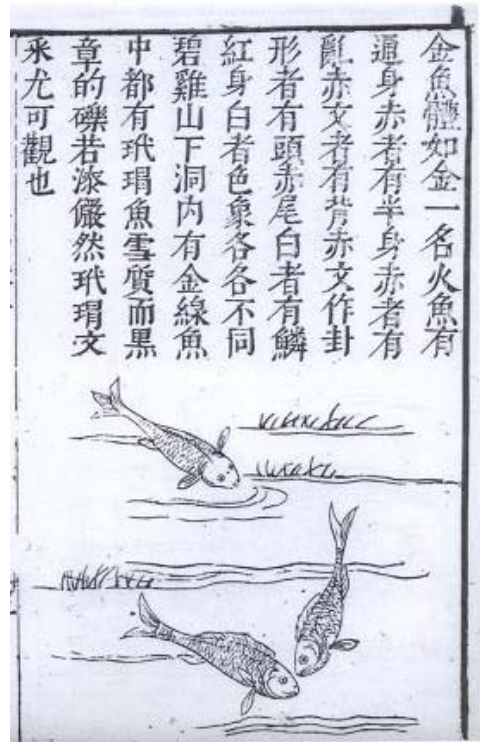 金魚體如金一名火魚有
通身赤者有半身赤者有
亂赤文者有背赤文作卦
形者有頭赤尾白者有鱗
紅身白者色象各各不同
碧雞山下洞内有金線魚
中都有玳瑁魚雪质而黑
章的礫若漆儼然玳瑁文
采尤可觀也